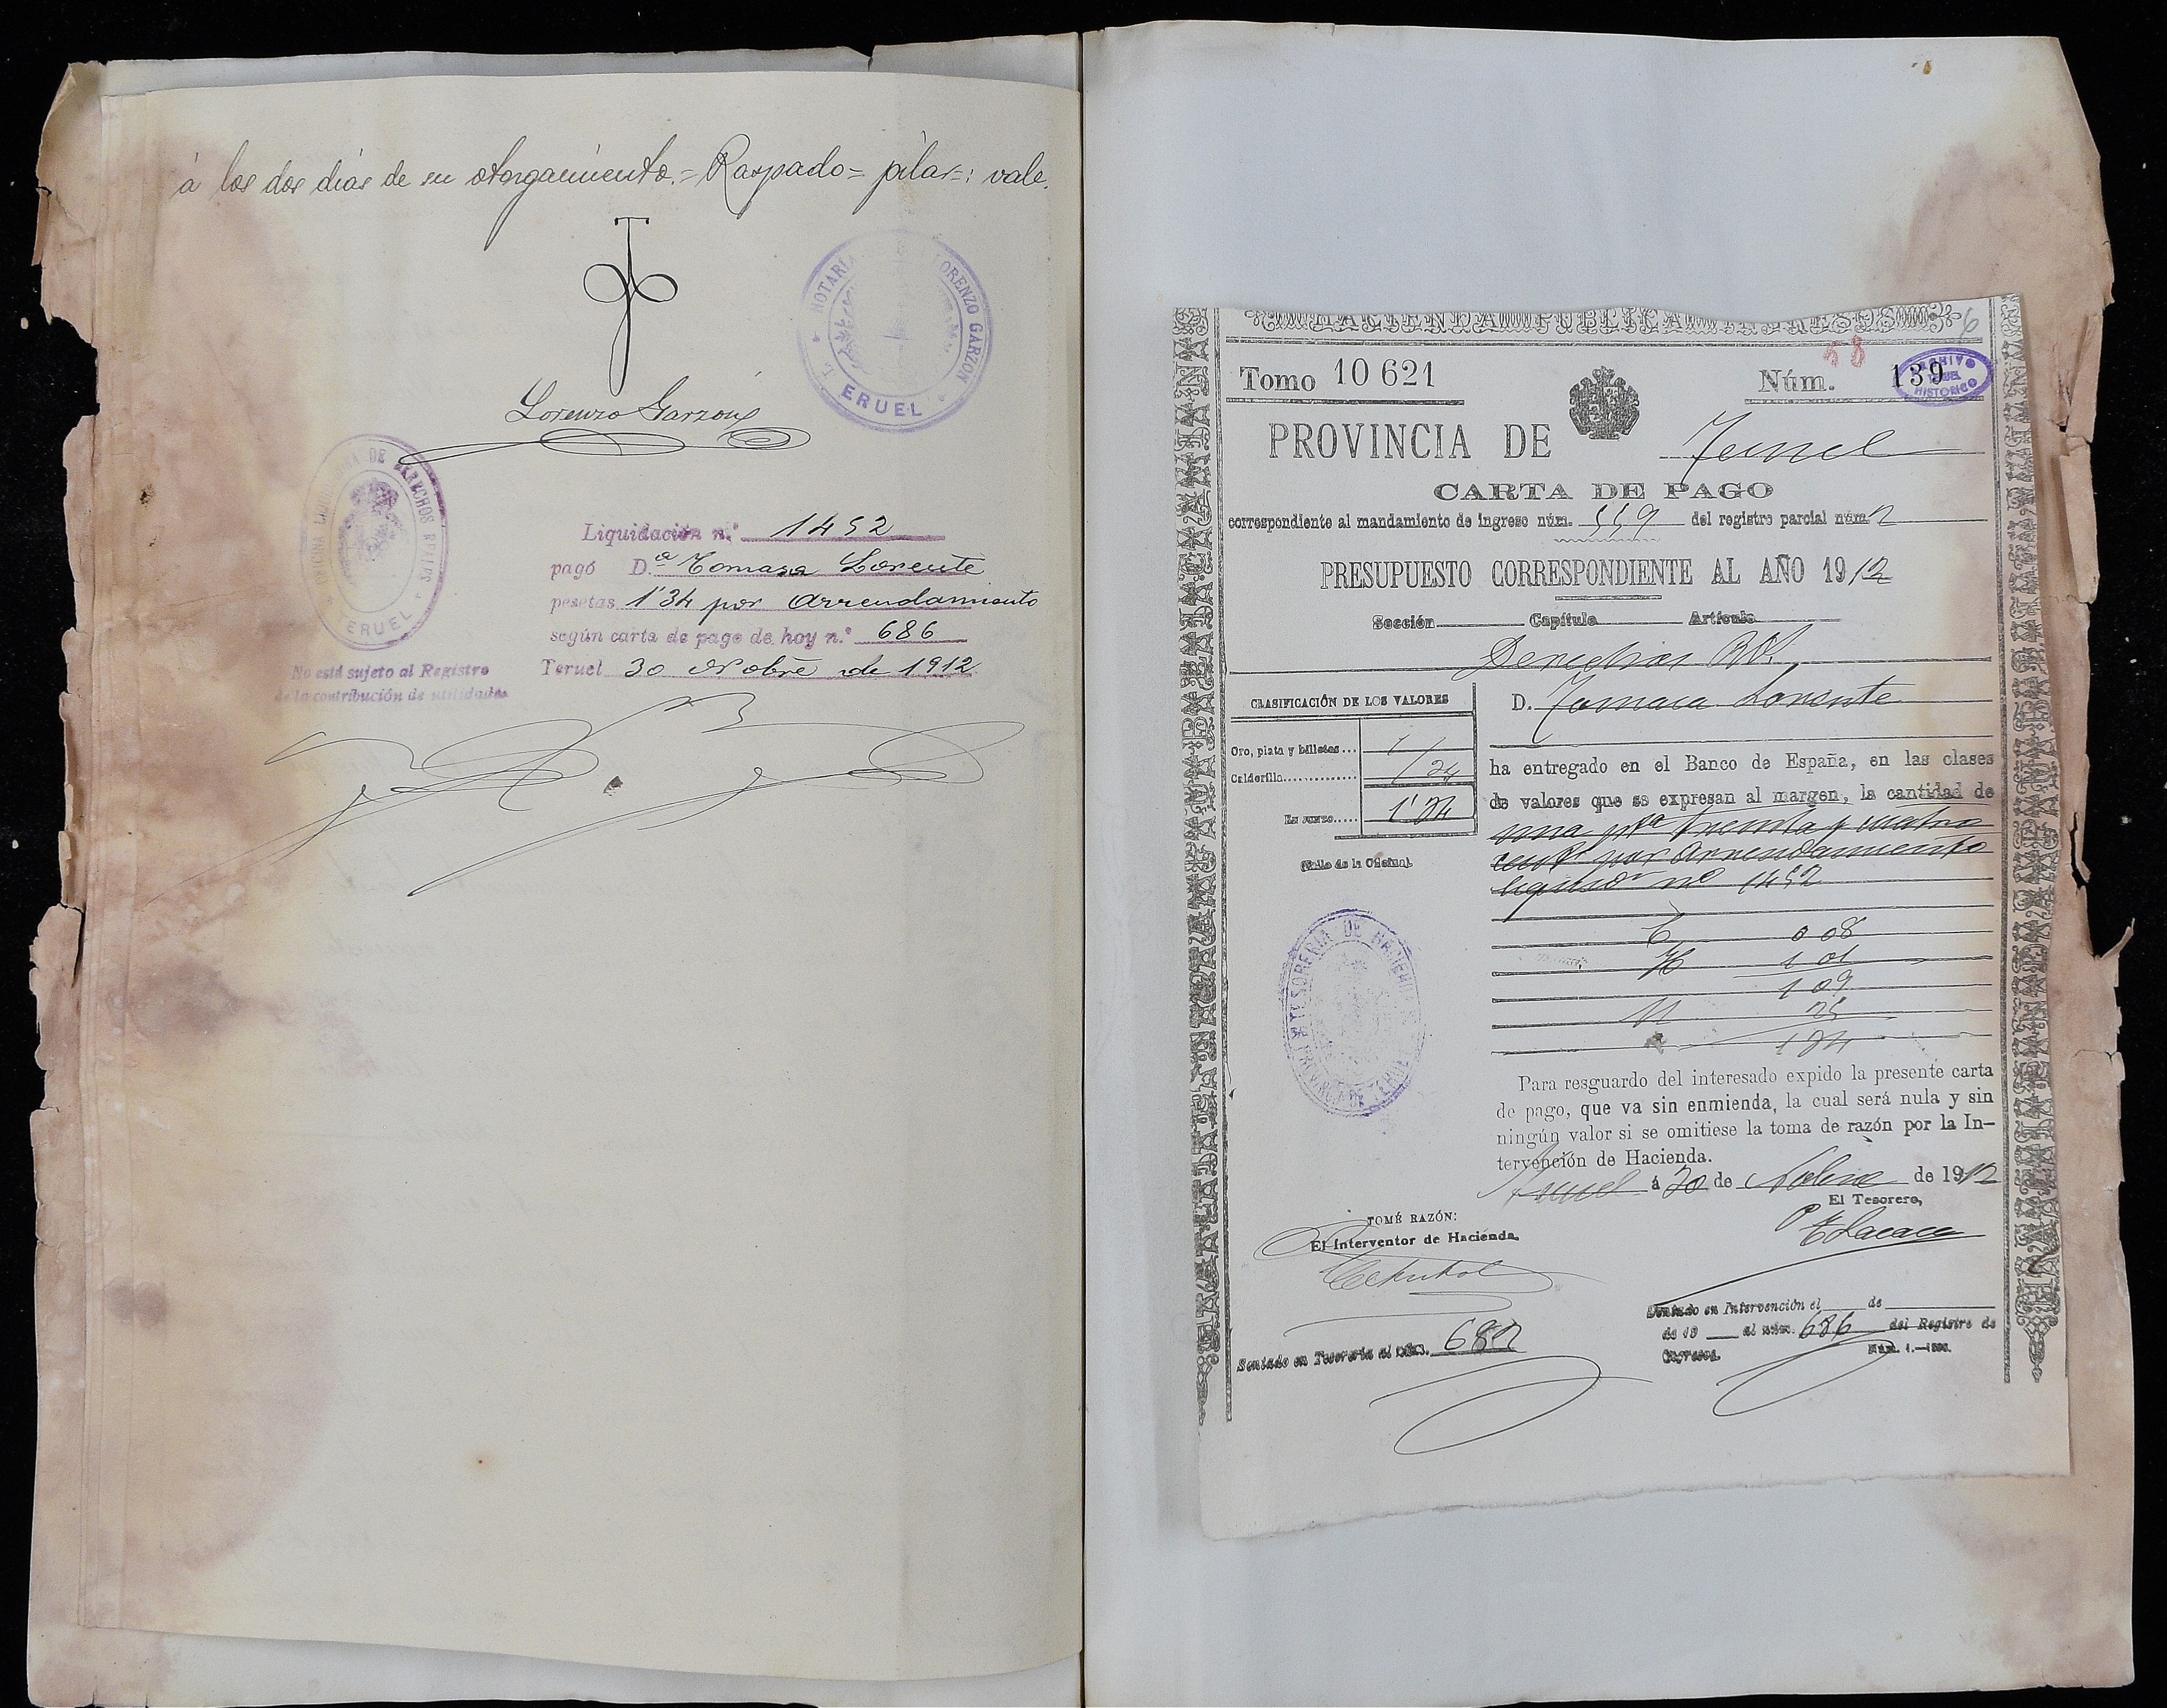 á los dos días de su otorgamiento.=Raspado=pilar=: vale.
NOTARÍA LORENZO GARZON
TERUEL
Lorenzo Garzón
OFICINA LIQUIDADORA DE DERECHOS REALES
TERUEL
Liquidación n.º 1452
pagó D.ª Tomasa Lorente
pesetas 1'34 por Arrendamiento
según carta de pago de hoy n.º 686
Teruel 30 Nobre de 1912
No está sujeto al Registro
de la contribución de utilidades
HACIENDA PUBLICA INGRESOS
6
58
Tomo 10 621
Núm. 139
ARCHIVO
HISTORICO
PROVINCIA DE Teruel
CARTA DE PAGO
correspondiente al mandamiento de ingreso núm. 559 del registro parcial núm. 2
PRESUPUESTO CORRESPONDIENTE AL AÑO 1912
Sección Capítulo Artículo
Derechos Rs.
CLASIFICACIÓN DE LOS VALORES
Oro, plata y billetes... 1
Calderilla............. 34
EN JUNTO..... 1'34
(Sello de la Oficina).
D. Tomasa Lorente
ha entregado en el Banco de España, en las clases
de valores que se expresan al margen, la cantidad de
una pta treinta y cuatro
cents por Arrendamiento
liquidon no 1452
T 0 08
H 1 01
1 09
M 25
1 34
TESORERIA DE HACIENDA
PROVINCIA DE TERUEL
Para resguardo del interesado expido la presente carta
de pago, que va sin enmienda, la cual será nula y sin
ningún valor si se omitiese la toma de razón por la In-
tervención de Hacienda.
Teruel á 30 de Nobre de 1912
El Tesorero,
TOMÉ RAZÓN:
El Interventor de Hacienda,
Sentado en Intervención el de
de 19 al núm. 686 del Registro de
Ingresos. Núm. 1.
Sentado en Tesorería al núm. 682